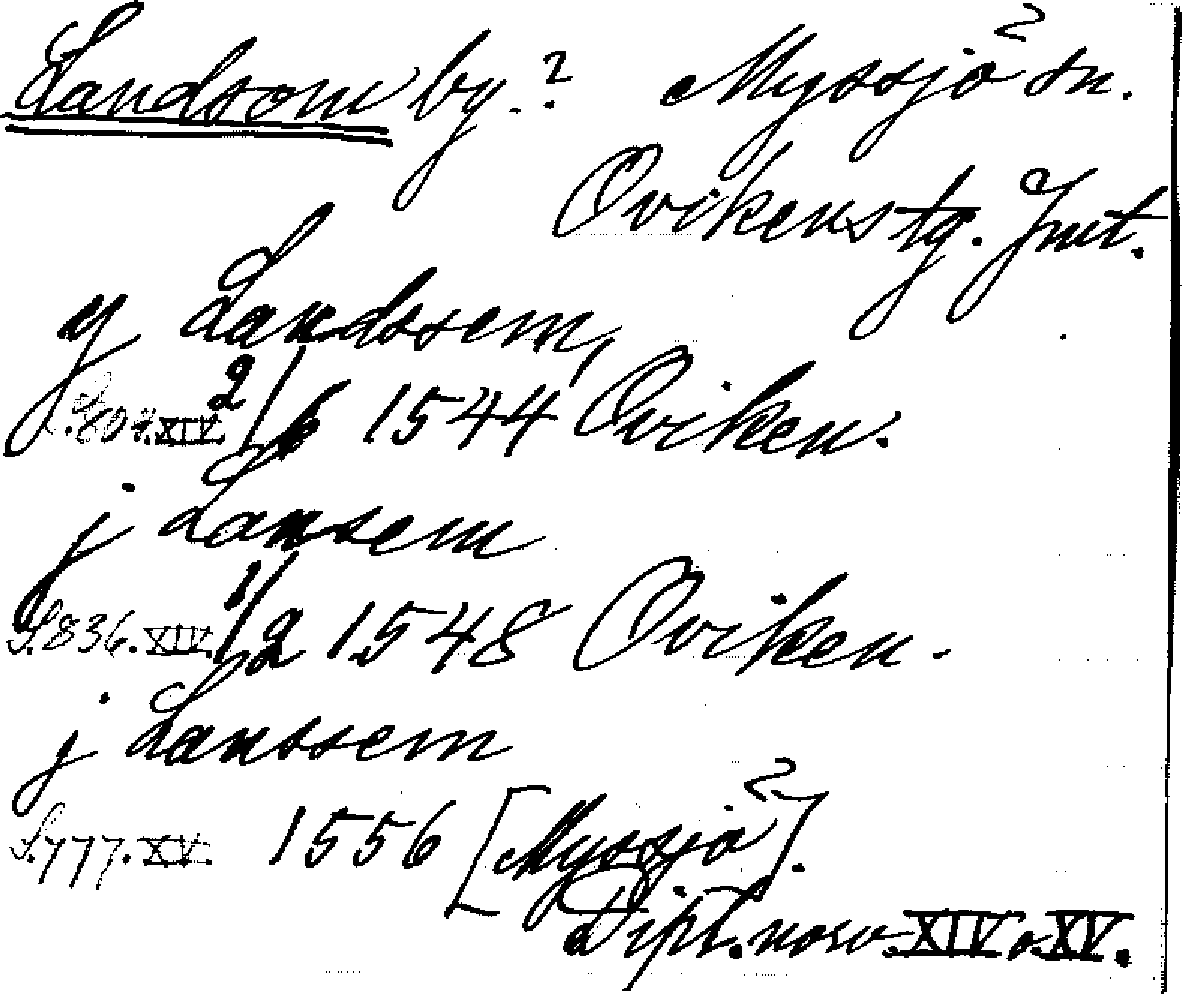 Landsom by.? Myssjö sn.
Ovikens tg. Jmt.
y Landssem,
S.804.XIV. 2/6 1544 Oviken.
j Lansem
S.836.XIV. 1/2 1548 Oviken.
j Lanssem
S.777.XV. 1556 [Myssjö].
Dipl. norv. XIV o XV.